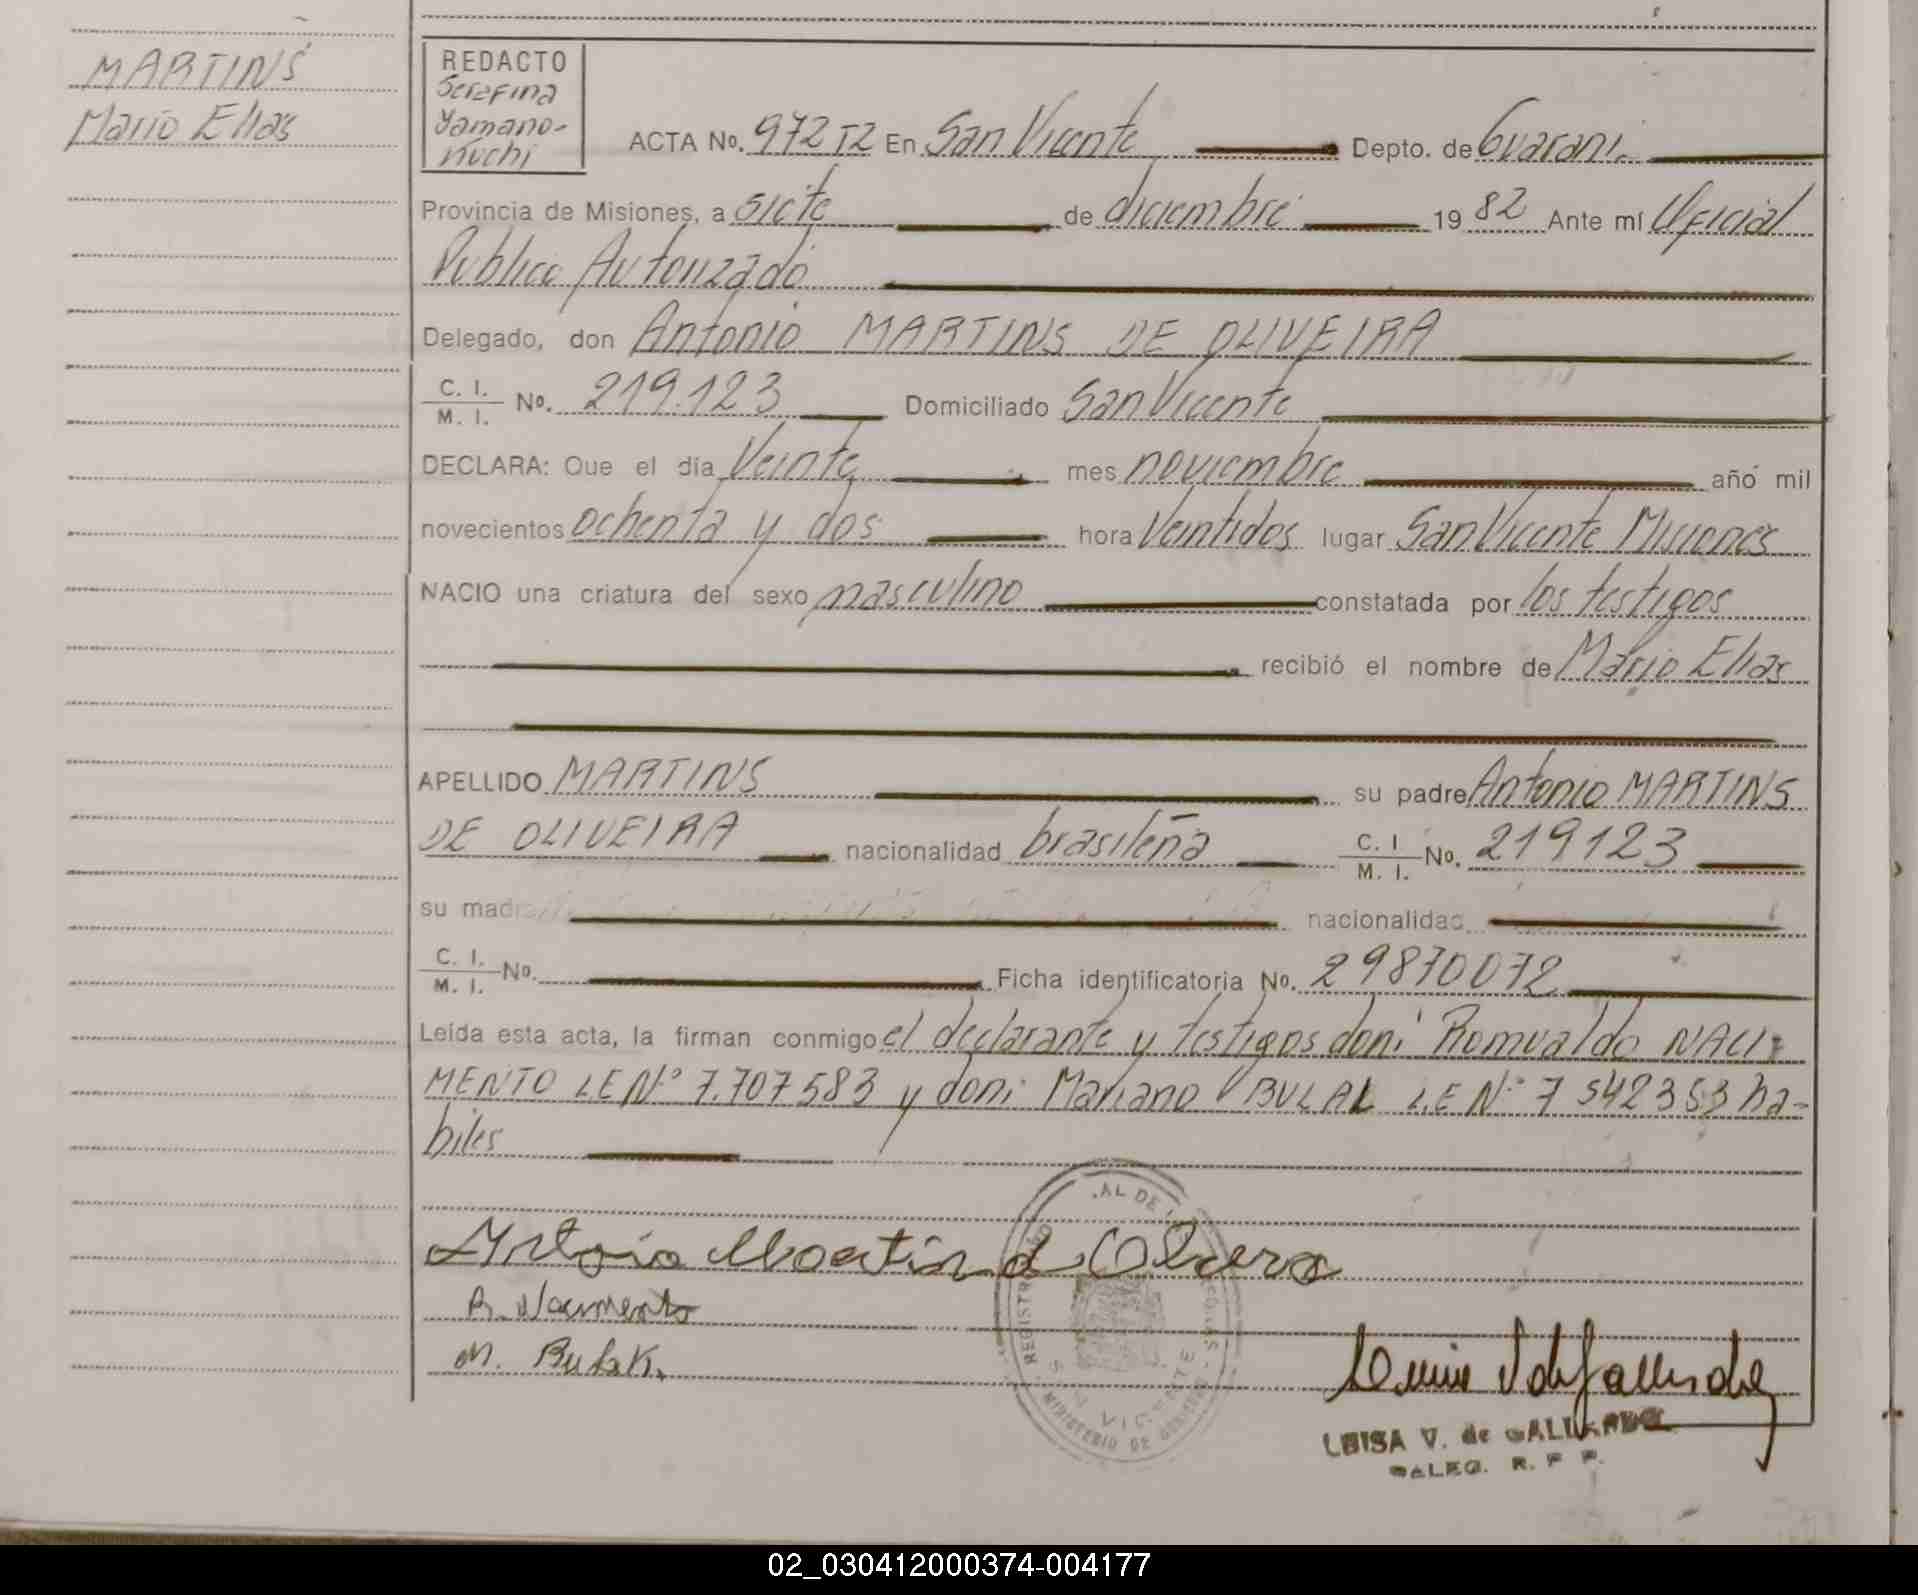 MARTINS
Mario Elias
REDACTO
Serafina
Yamano-
Kuchi
ACTA No. 972 T2 En San Vicente Depto. de Guarani.
Provincia de Misiones, a siete de diciembre 19 82 Ante mí Oficial
Publico Autorizado
Delegado, don Antonio MARTINS DE OLIVEIRA
C. I.
M. I. No. 219.123 Domiciliado San Vicente
DECLARA: Que el día Veinte mes noviembre año mil
novecientos ochenta y dos hora Veintidos lugar San Vicente Misiones
NACIO una criatura del sexo masculino constatada por los testigos
recibió el nombre de Mario Elias
APELLIDO MARTINS su padre Antonio MARTINS
DE OLIVEIRA nacionalidad brasileña C. I.
M. I. No. 219123
su madre nacionalidad
C. I.
M. I. No. Ficha identificatoria No. 29870072
Leída esta acta, la firman conmigo el declarante y testigos don: Romualdo NACI-
MENTO L.E Nº 7.707583 y don: Mariano BULAK L.E Nº 7542353 ha-
biles
Antonio Martins de Olivera
R. Nacimento
M. Bulak.
REGISTR
AL DE
MINISTERIO DE GOBIERNO
LUISA V. de GALLARDO
DELEG. R. P. P.
02_030412000374-004177